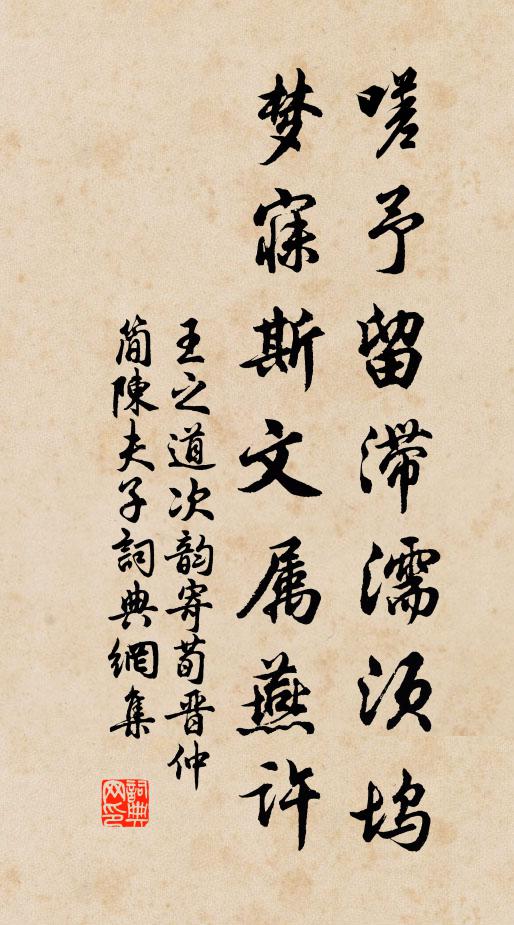 嗟予留滞濡须坞
梦寐斯文属燕许
王之道次韵寄荀晋仲
简陳夫子詞典網集
詞典网印